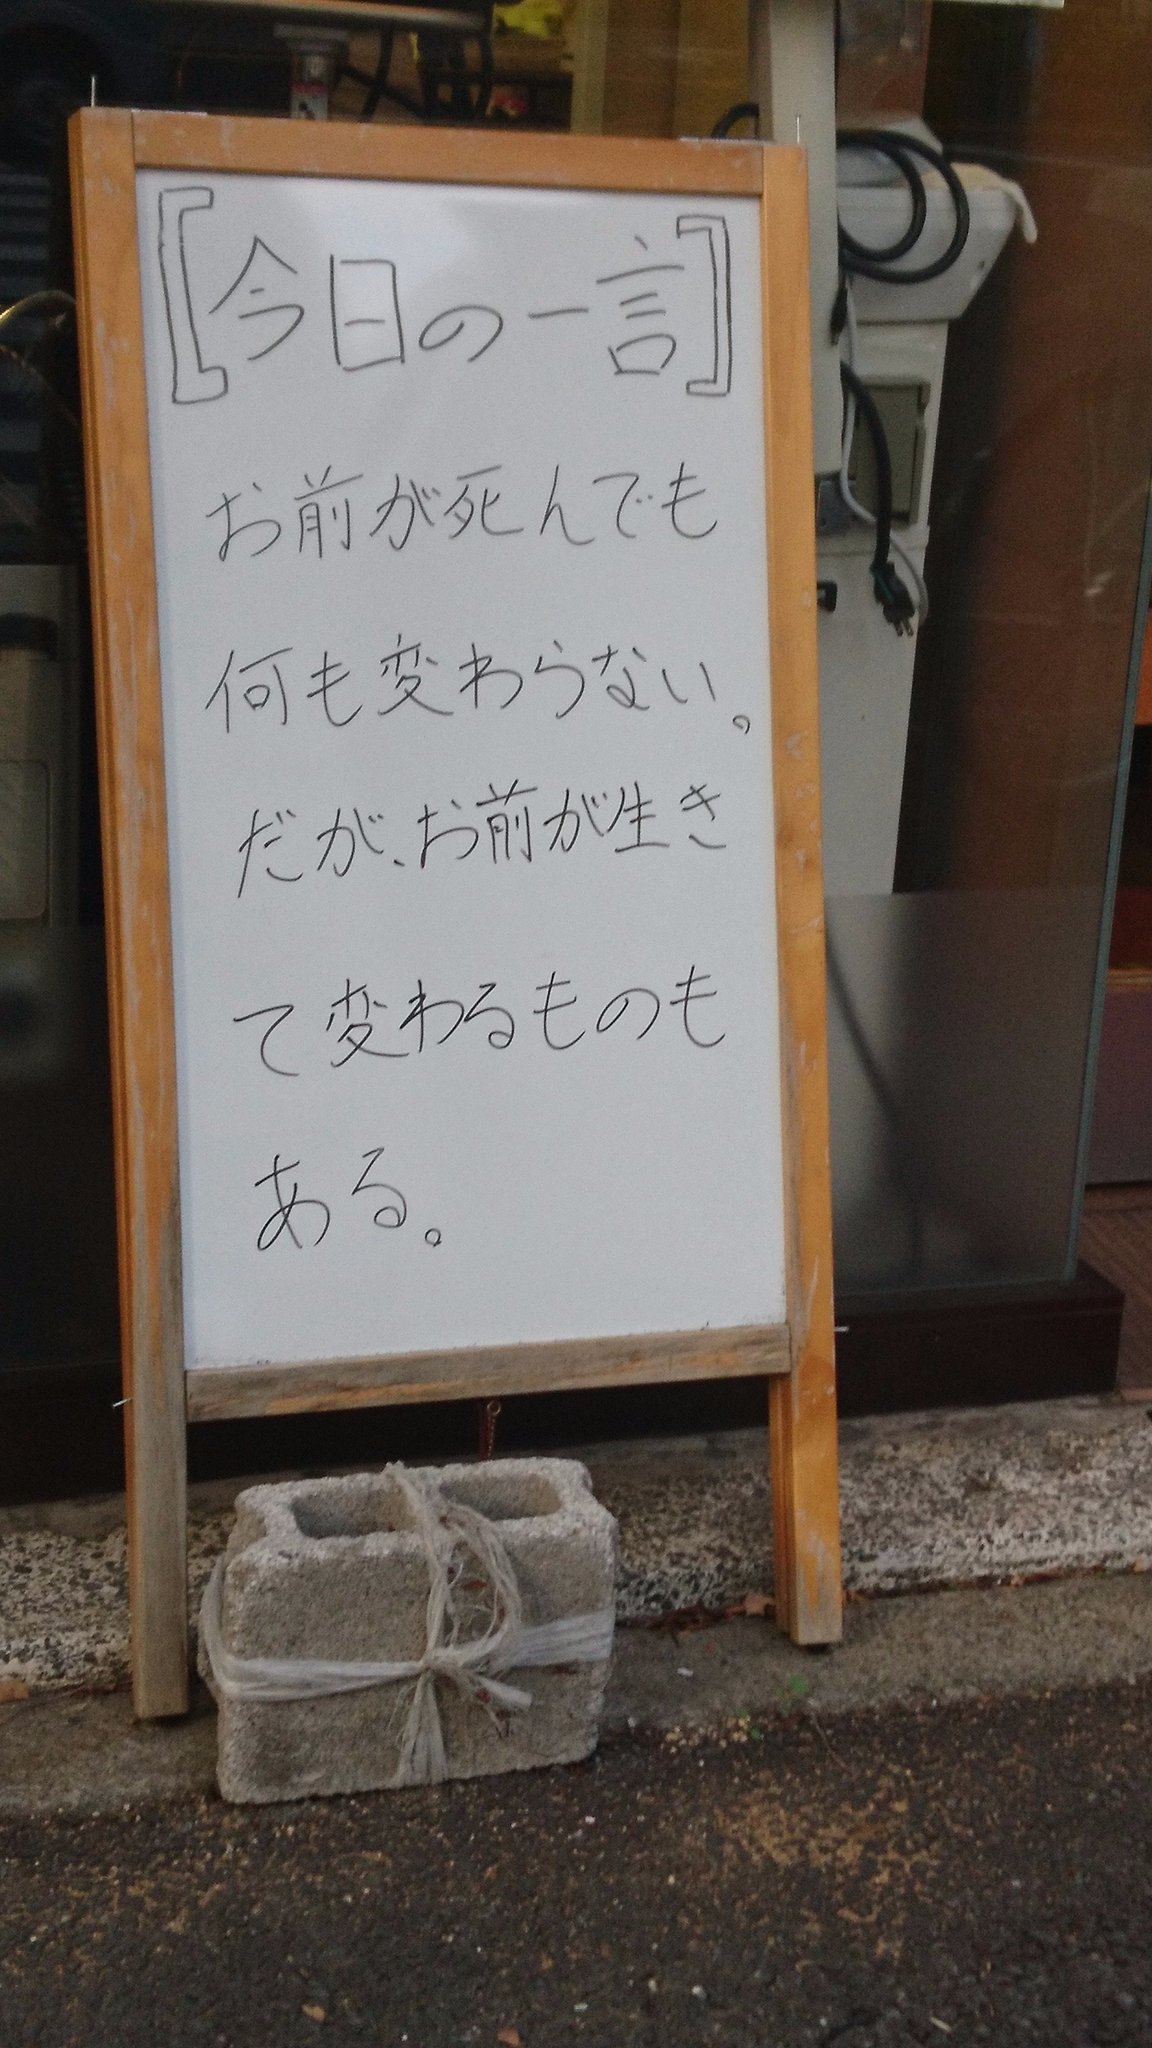 [今日の一言]
お前が死んでも
何も変わらない。
だが、お前が生き
て変わるものも
ある。